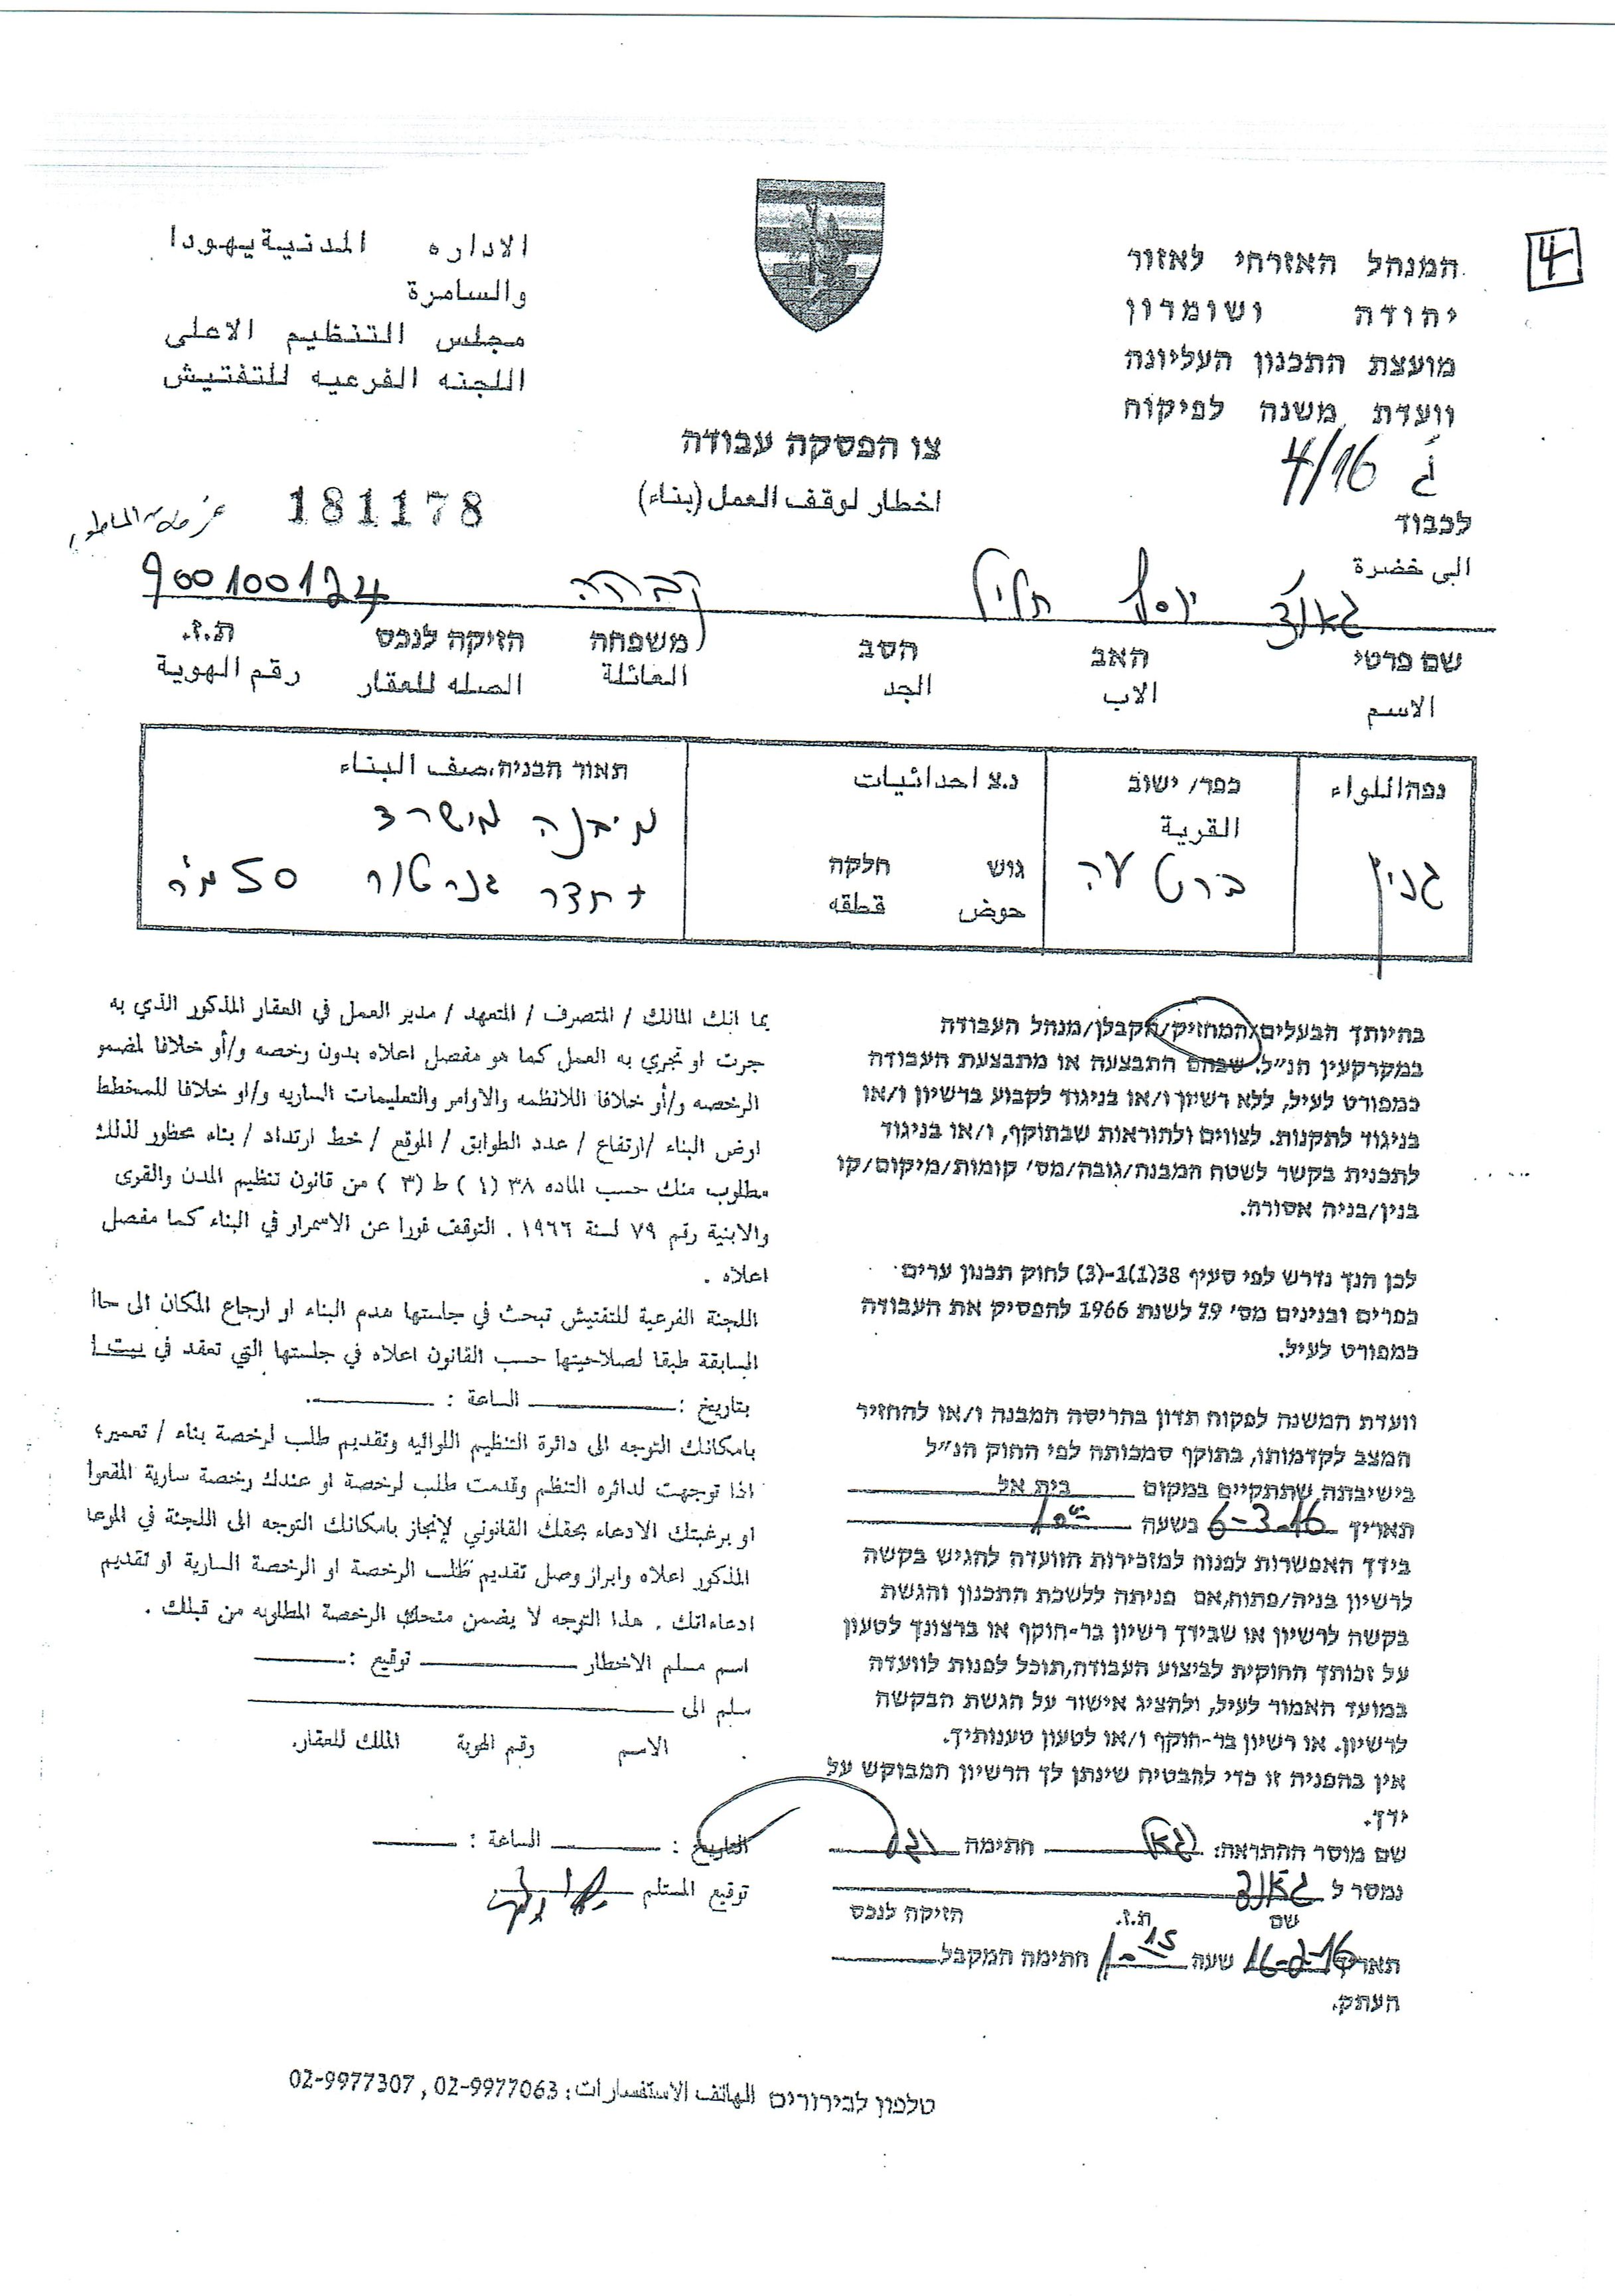 4
המנהל האזרחי לאזור
יהודה ושומרון
מועצת התכנון העליונה
וועדת משנה לפיקוח
الاداره المدنية يهودا
والسامرة
مجلس التنظيم الاعلى
اللجنه الفرعيه للتفتيش
צו הפסקה עבודה
اخطار لوقف العمل (بناء)
ג 4/16
181178
לכבוד
الى حضرة
יוסף חליל קבהה 900100124
שם פרטי האב הסב משפחה הזיקה לנכס ת.ז.
الاسم الاب الجد العائلة الصله للعقار رقم الهوية
נפה/اللواء כפר/ ישוב القرية נ.צ احداثيات תאור הבניה/صف البناء
גוש חלקה
حوض قطقه
ג'נין ברטעה מבנה משרד
+ חדר גנרטור 50 מ"ר
בהיותך הבעלים/המחזיק/הקבלן/מנהל העבודה
במקרקעין הנ״ל. שבהם התבצעה או מתבצעת העבודה
כמפורט לעיל, ללא רשיון ו/או בניגוד לקבוע ברשיון ו/או
בניגוד לתקנות. לצווים ולהוראות שבתוקף, ו/או בניגוד
לתכנית בקשר לשטח המבנה/גובה/מס׳ קומות/מיקום/קו
בנין/בניה אסורה.
לכן הנך נדרש לפי סעיף 38(1)1-(3) לחוק תכנון ערים
כפרים ובנינים מס׳ 79 לשנת 1966 להפסיק את העבודה
כמפורט לעיל.
וועדת המשנה לפקוח תדון בהריסה המבנה ו/או להחזיר
המצב לקדמותו, בתוקף סמכותה לפי החוק הנ״ל
בישיבתה שתתקיים במקום בית אל
תאריך 6-3-16 בשעה 10
בידך האפשרות לפנות למזכירות הוועדה להגיש בקשה
לרשיון בניה/פתוח,אם פניתה ללשכת התכנון והגשת
בקשה לרשיון או שבידך רשיון בר-תוקף או ברצונך לטעון
על זכותך החוקית לביצוע העבודה,תוכל לפנות לוועדה
במועד האמור לעיל, ולהציג אישור על הגשת הבקשה
לרשיון. או רשיון בר-תוקף ו/או לטעון טענותיך.
אין בהפניה זו כדי להבטיח שינתן לך הרשיון המבוקש על
ידך.
שם מוסר ההתראה: חתימה
נמסר ל
שם ת.ז. הזיקה לנכס
תאריך 16-2-16 שעה 10 15 חתימה המקבל
העתק.
بما انك المالك / المتصرف / المتعهد / مدير العمل في العقار المذكور الذي به
جرت او تجري به العمل كما هو مفصل اعلاه بدون رخصه و/أو خلافا لمضمو
الرخصه و/أو خلافا اللانظمه والاوامر والتعليمات الساريه و/او خلافا للمخطط
ارض البناء /ارتفاع / عدد الطوابق / الموقع / خط ارتداد / بناء محظور لذلك
مطلوب منك حسب الماده ٣٨ (١) ط (٣) من قانون تنظيم المدن والقرى
والابنية رقم ٧٩ لسنة ١٩٦٦ . التوقف فورا عن الاسمرار في البناء كما مفصل
اعلاه .
اللجنة الفرعية للتفتيش تبحث في جلستها هدم البناء او ارجاع المكان الى حاا
السابقة طبقا لصلاحيتها حسب القانون اعلاه في جلستها التي تعقد في بيت ا
بتاريخ : الساعة :
بامكانك التوجه الى دائرة التنظيم اللوائيه وتقديم طلب لرخصة بناء / تعمير؛
اذا توجهت لدائره التنظم وقدمت طلب لرخصة او عندك رخصة سارية المفعوا
او برغبتك الادعاء بحقك القانوني لإنجاز بامكانك التوجه الى اللجنة في الموعا
المذكور اعلاه وابراز وصل تقديم طلب الرخصة او الرخصة السارية او تقديم
ادعاءاتك . هذا التوجه لا يضمن منحك الرخصة المطلوبه من قبلك .
اسم مسلم الاخطار توقيع :
سلم الى
الاسم رقم الهوية المللك للعقار.
التاريخ : الساعة :
توقيع المستلم
טלפון לבירורים الهاتف الاستفسارات: 02-9977063 , 02-9977307